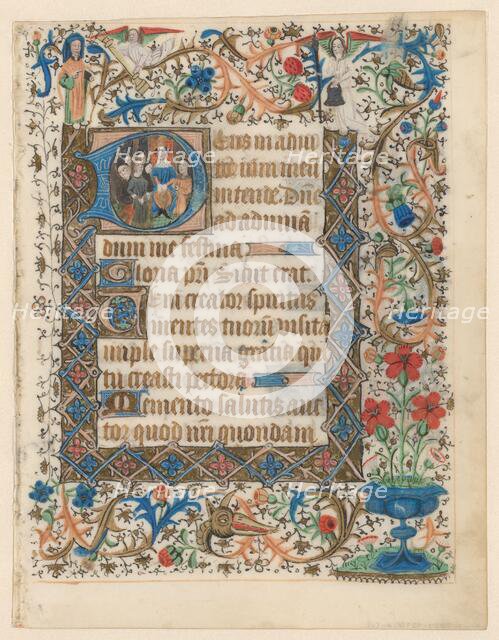 Deus in adiu
toriu meu
intende. Dne
ad adiuuād
dum me festina
Gloria pri Sicut erat
Veni creator spiritus
mentes tuorū visita
imple superna gratia que
tu creasti pectora
Memento salutis auc
tor quod nri quondam
Heritage
Heritage
Heritage
Heritage
Heritage
Heritage